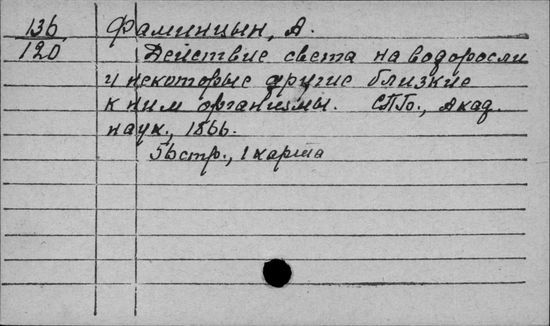 136, Фаминцын, А.
120 Действие света на водоросли
и некоторые другие близкие
к ним организмы. СПб., Акад.
наук., 1866.
56 стр., 1 карта